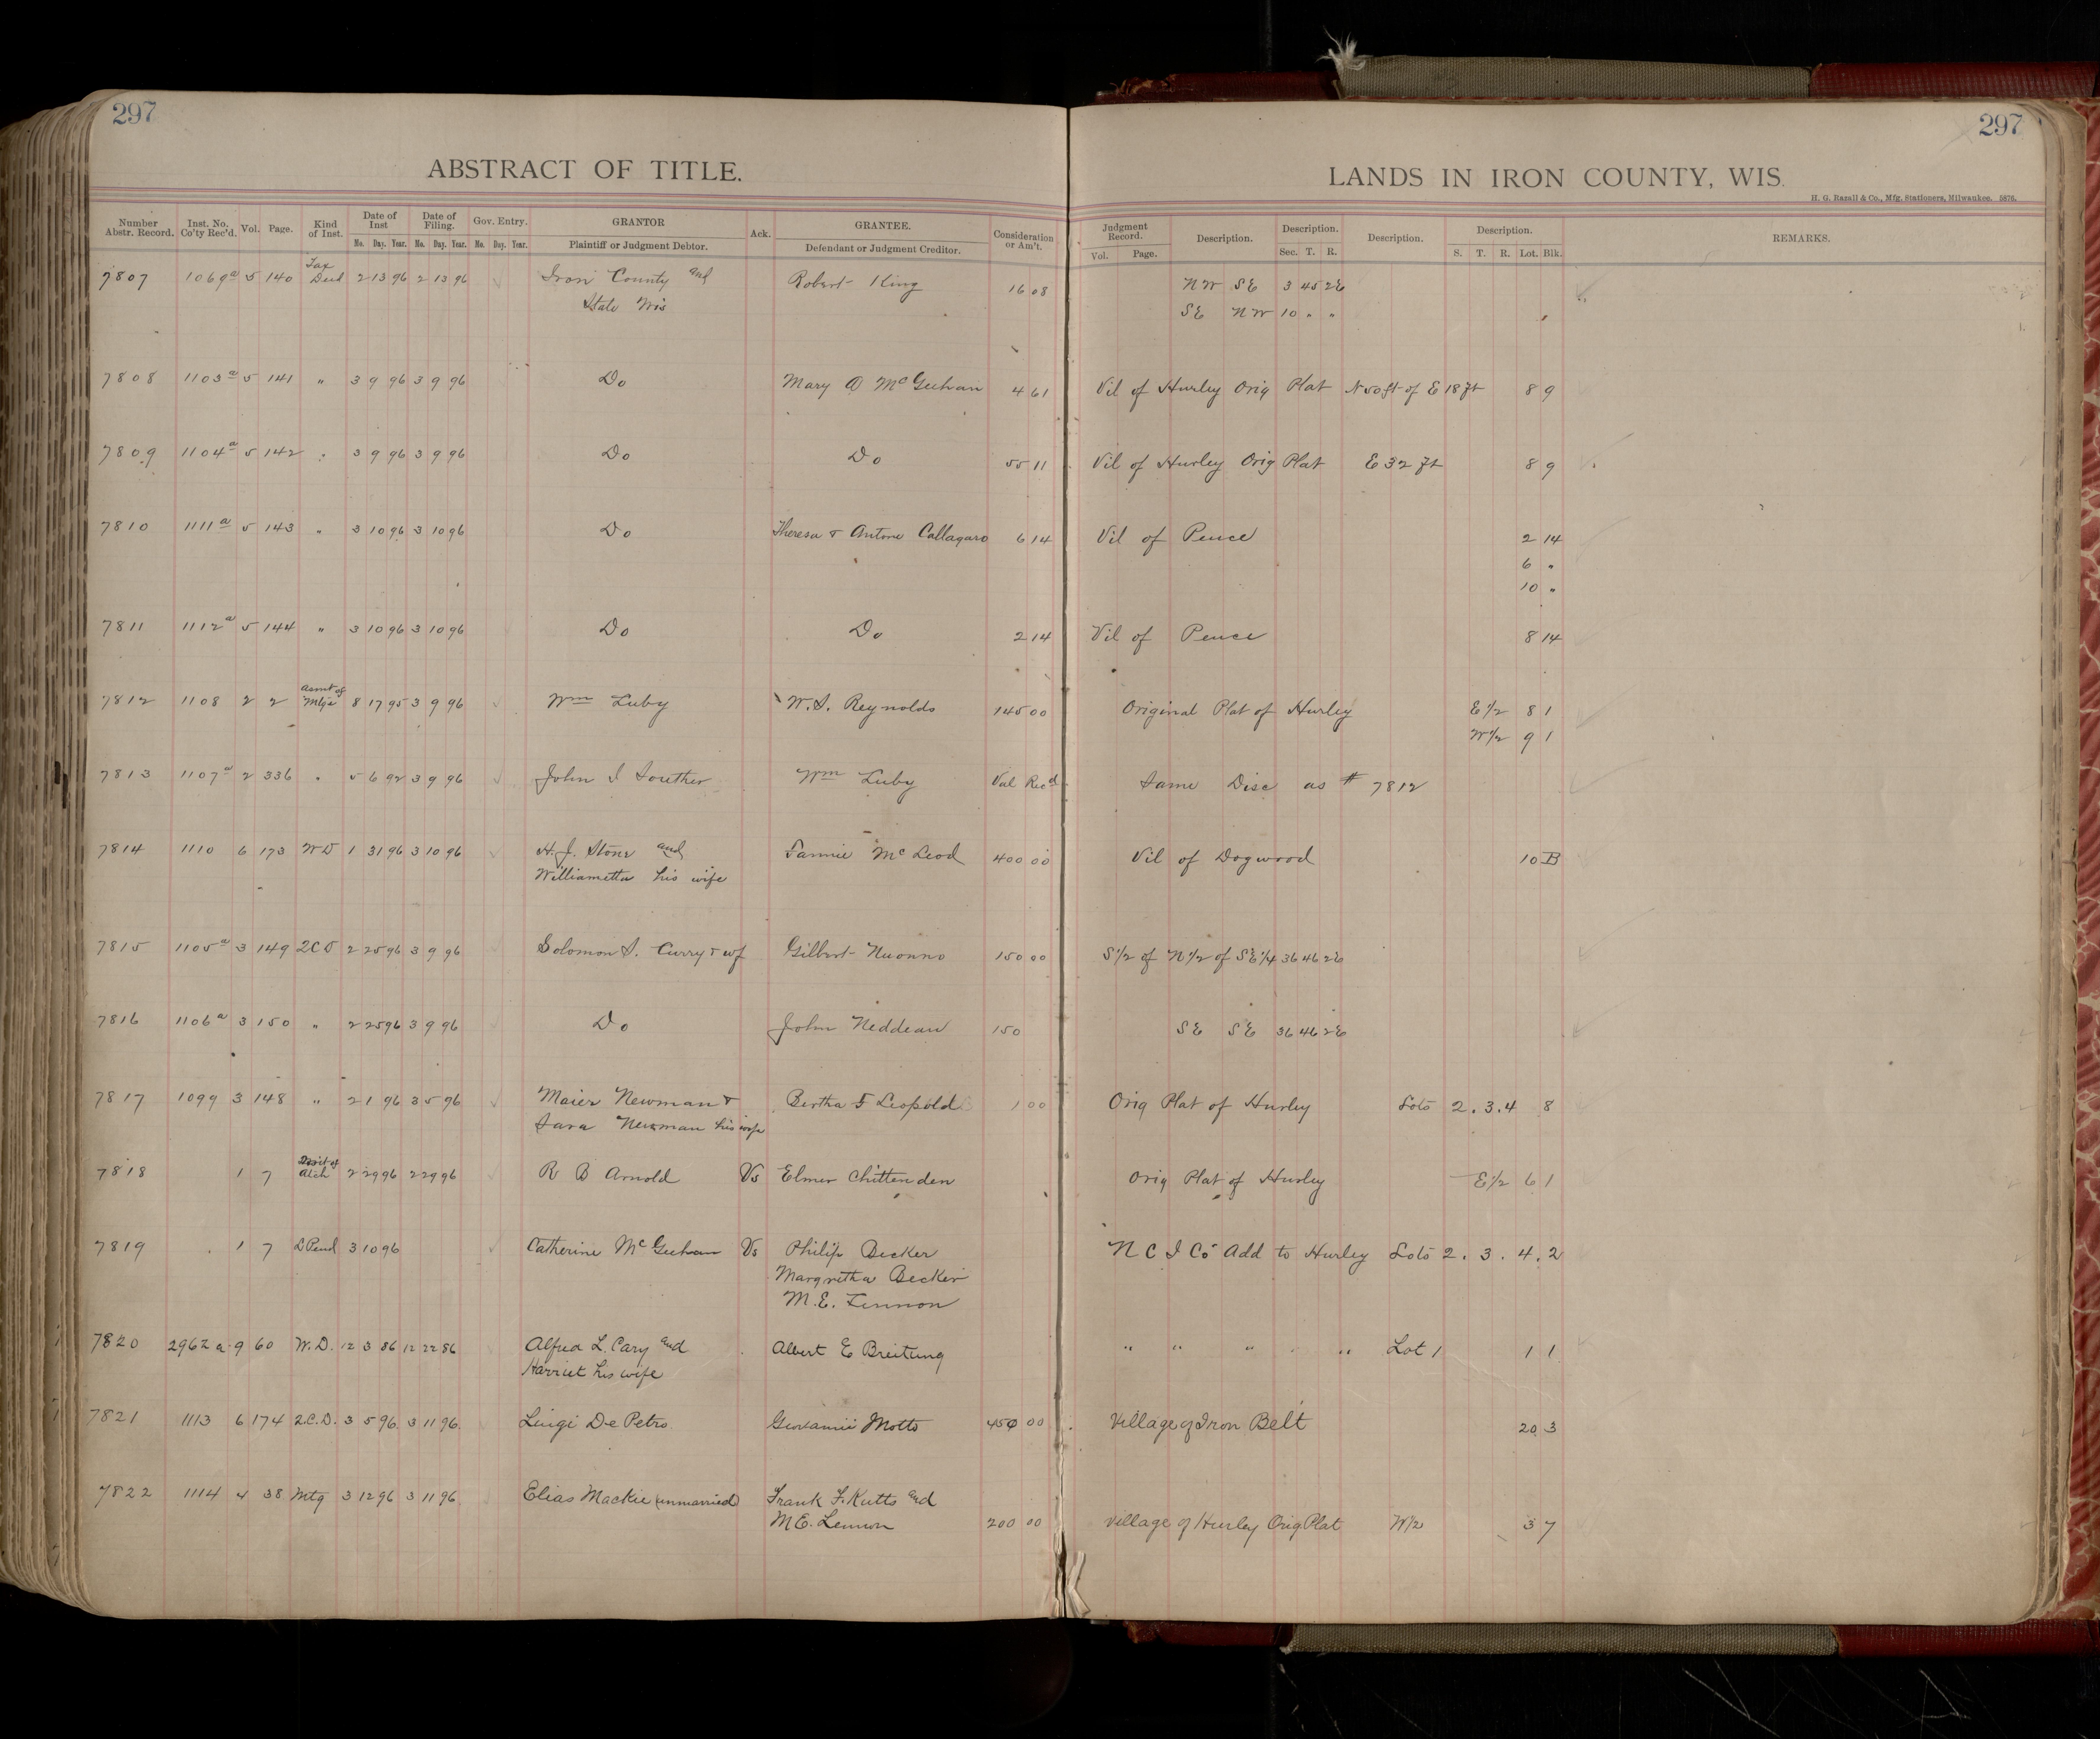 297
297
ABSTRACT OF TITLE.
LANDS IN IRON COUNTY, WIS.
H. G. Razall & Co., Mfg. Stationers, Milwaukee. 5876.
Number Abstr. Record. Inst. No. Co'ty Rec'd. Vol. Page. Kind of Inst. Date of Inst Date of Filing. Gov. Entry. GRANTOR Ack. GRANTEE. Consideration or Am't. Judgment Record. Description. Description. Description. Description. REMARKS.
Mo. Day. Year. Mo. Day. Year. Mo. Day. Year. Plaintiff or Judgment Debtor. Defendant or Judgment Creditor. Vol. Page. Sec. T. R. S. T. R. Lot. Blk.
7807 1069a 5 140 Tax Deed 2 13 96 2 13 96 Iron County and Robert King 16 08 NW SE 3 45 2E
State Wis SE NW 10 " "
7808 1103a 5 141 " 3 9 96 3 9 96 Do Mary A McGeehan 4 61 Vil of Hurley Orig Plat N 50 ft of E 18 ft 8 9
7809 1104a 5 142 " 3 9 96 3 9 96 Do Do 55 11 Vil of Hurley Orig Plat E 32 ft 8 9
7810 1111a 5 143 " 3 10 96 3 10 96 Do Theresa & Antone Callagaro 6 14 Vil of Pence 2 14
6 "
10 "
7811 1112a 5 144 " 3 10 96 3 10 96 Do Do 2 14 Vil of Pence 8 14
7812 1108 2 2 Asmt of Mtge 8 17 95 3 9 96 Wm Luby W. S. Reynolds 145 00 Original Plat of Hurley E 1/2 8 1
W 1/2 9 1
7813 1107a 2 336 " 5 6 92 3 9 96 John I Souther Wm Luby Val Recd Same Disc as # 7812
7814 1110 6 173 WD 1 31 96 3 10 96 H. J. Stone and Fannie McLeod 400 00 Vil of Dogwood 10 B
Williametta his wife
7815 1105a 3 149 2CD 2 25 96 3 9 96 Solomon S. Curry & wf Gilbert Nuonno 150 00 S 1/2 of N 1/2 of SE 1/4 36 46 2E
7816 1106a 3 150 " 2 25 96 3 9 96 Do John Neddeau 150 SE SE 36 46 2E
7817 1099 3 148 " 2 1 96 3 5 96 Maier Newman & Bertha F Leopold 1 00 Orig Plat of Hurley Lots 2. 3. 4 8
Sara Newman his wife
7818 1 7 Atch 2 29 96 2 29 96 R B Arnold Vs Elmer Chittenden Orig Plat of Hurley E 1/2 6 1
7819 1 7 L Pend 3 10 96 Catherine McGeehan Vs Philip Becker N C I Co Add to Hurley Lots 2. 3. 4. 2
Margretha Becker
M. E. Lennon
7820 2962a 9 60 W. D. 12 3 86 12 22 86 Alfred L. Cary and Albert E Breitung " " " " Lot 1 1 1
Harriet his wife
7821 1113 6 174 2.C.D. 3 5 96 3 11 96 Luigi De Petro Giovannii Motto 450 00 Village of Iron Belt 20 3
7822 1114 4 38 Mtg 3 12 96 3 11 96 Elias Mackie (unmarried) Frank F. Kutts and
M E. Lennon 200 00 Village of Hurley Orig Plat W 1/2 3 7